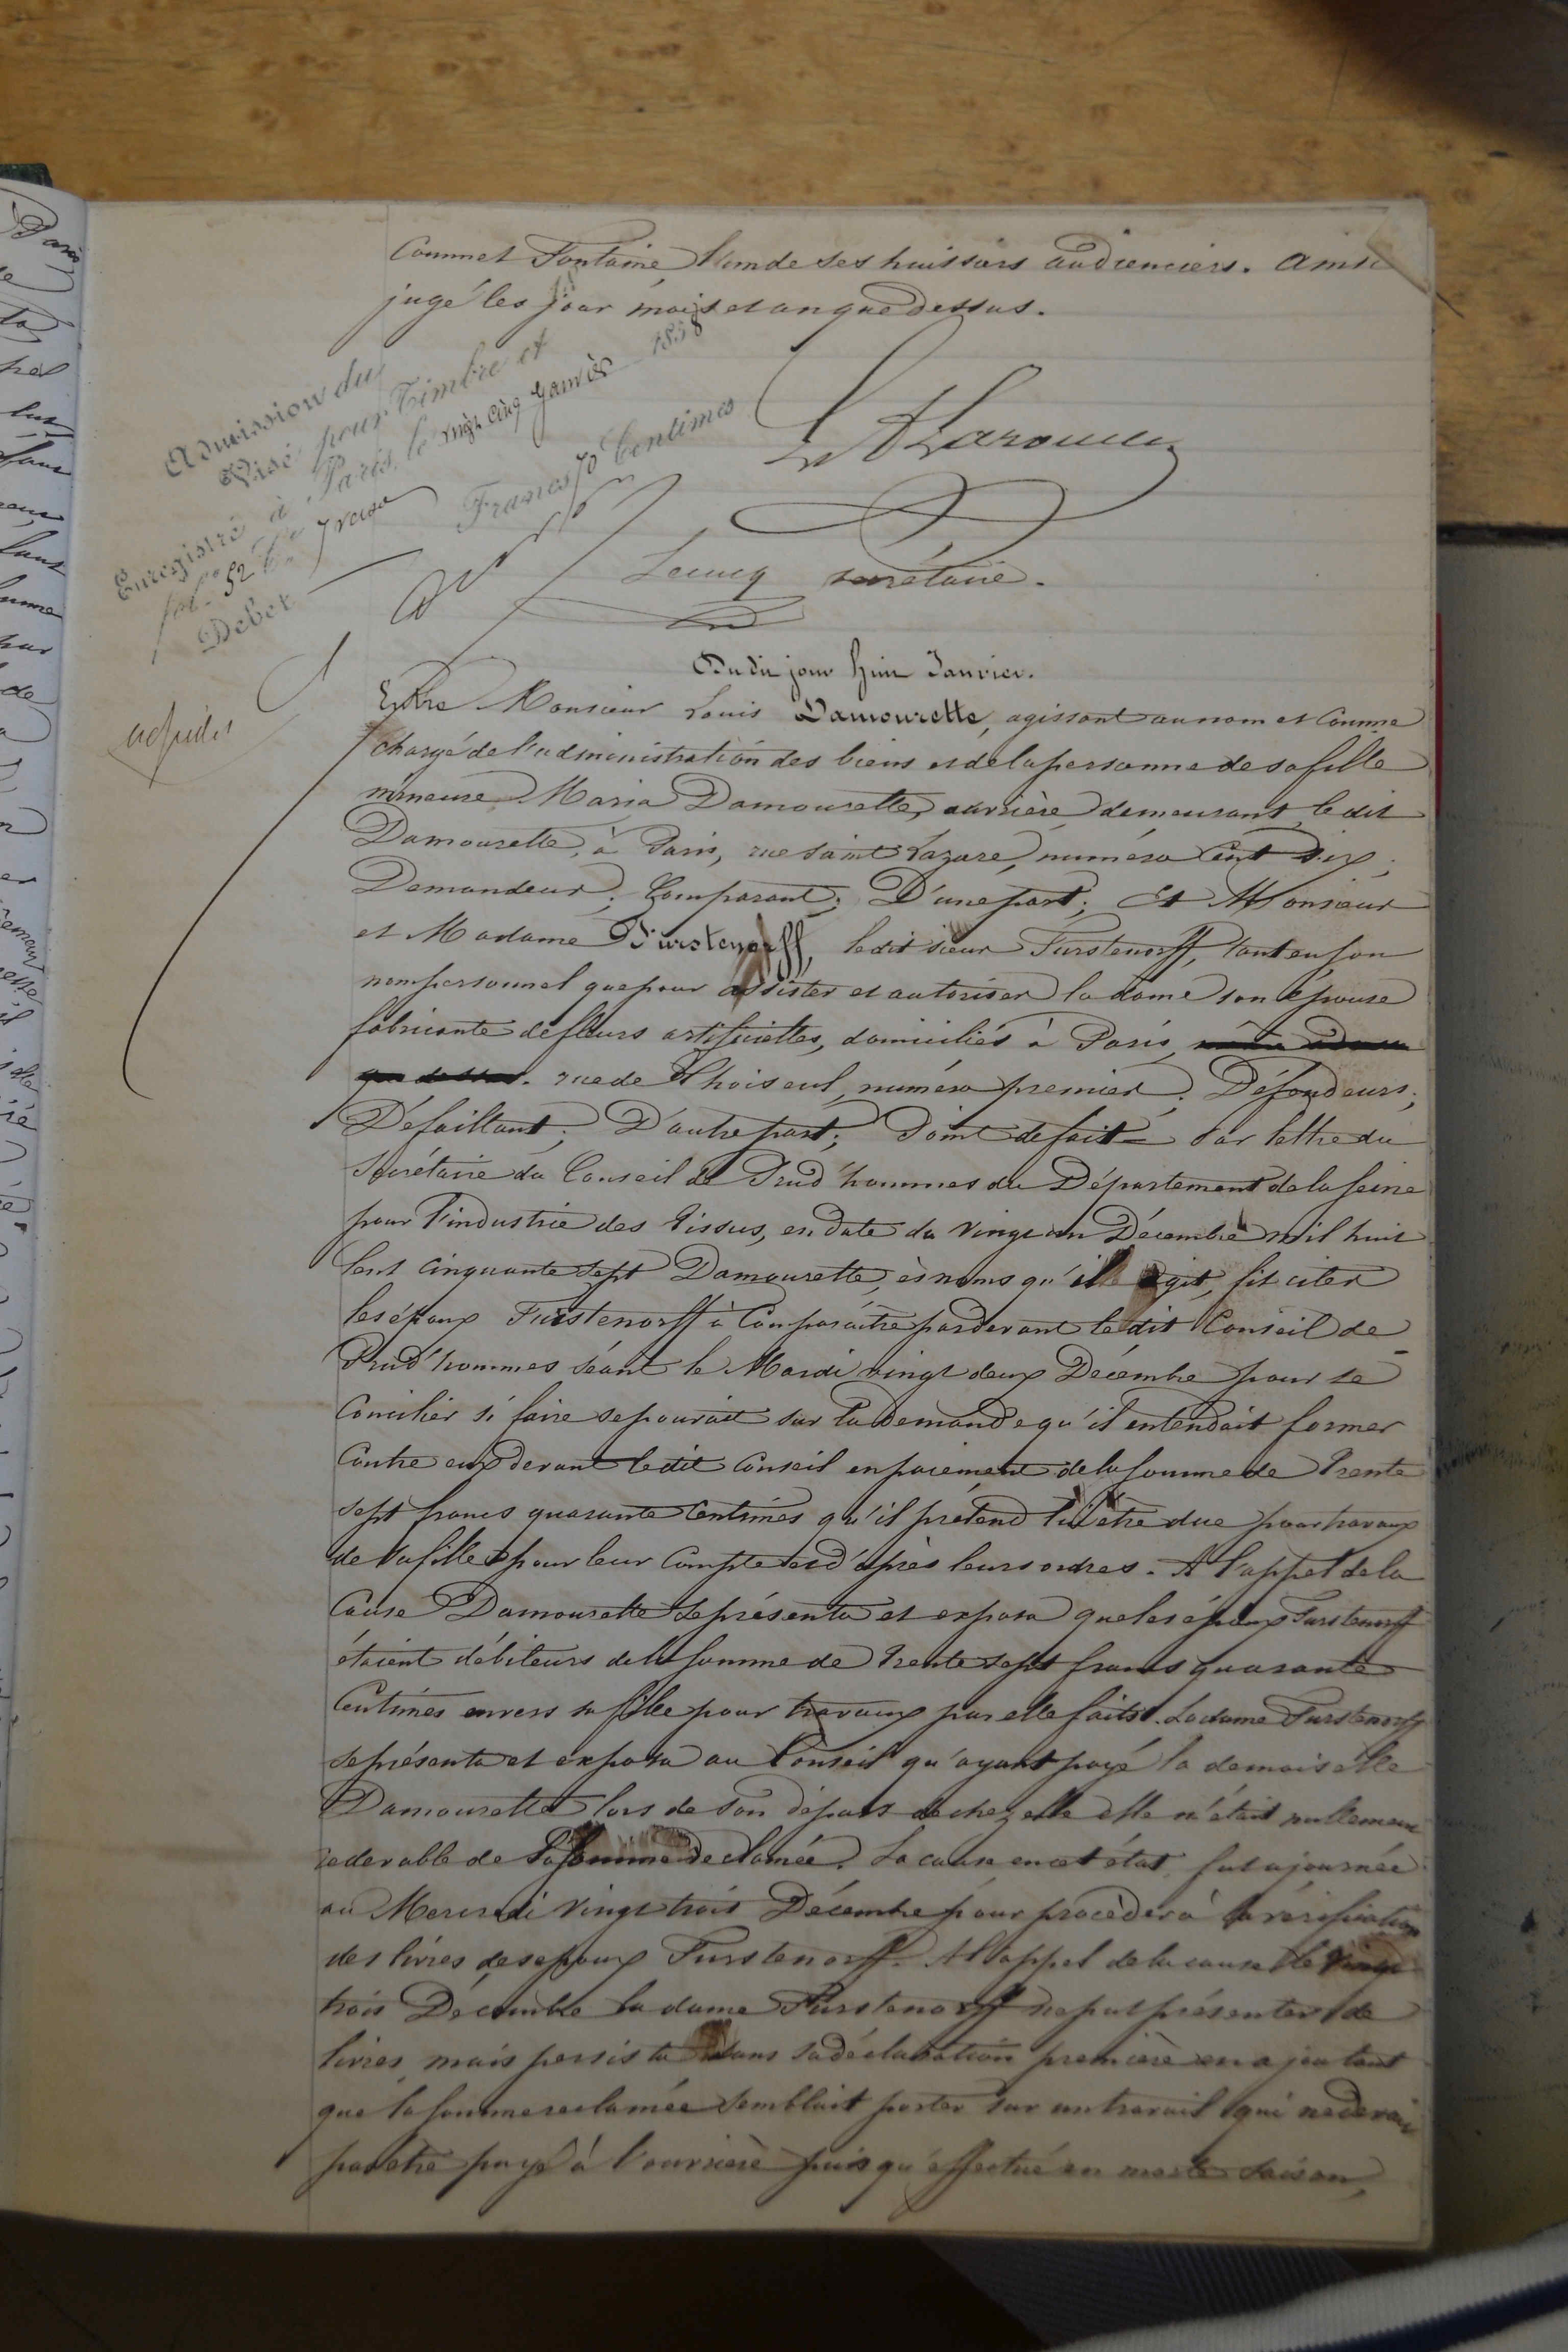 Commet Fontaine l'un de ses huissiers audienciers. Ainsi
jugé les jour mois et an que dessus.
Admission du
Visé pour Timbre et
Enregistré à Paris, le vingt cinq Janvier 1858
fol. 52
Debet Francs 70 Centimes
Lecucq secrétaire.
Du dit jour huit Janvier.
Entre Monsieur Louis Damourette, agissant au nom et Comme
chargé de l'administration des biens et de la personne de sa fille
mineure Maria Damourette, ouvrière, demeurant le dit
Damourette, à Paris, rue Saint Lazare, numéro Cent dix;
Demandeur; Comparant; D'une part; Et Monsieur
et Madame Furstenorff, le dit sieur Furstenorff, tant en son
nom personnel que pour assister et autoriser la dame son épouse
fabricante de fleurs artificielles, domiciliés à Paris,
rue de Choiseul, numéro premier; Défendeurs;
Défaillant; D'autre part; Point de fait - Par lettre du
Secrétaire du Conseil de Prud'hommes du Département de la Seine
pour l'industrie des Tissus, en date du vingt un Décembre mil huit
Cent cinquante sept Damourette, ès noms qu'il agit, fit citer
les époux Furstenorff à Comparaître par devant le dit Conseil de
Prud'hommes séant le Mardi vingt deux Décembre pour se
Concilier si faire se pouvait sur la demande qu'il entendait former
Contre eux devant le dit Conseil en paiement de la somme de Trente
sept francs quarante Centimes qu'il prétend lui être due pour travaux
de sa fille pour leur Compte et d'après leurs ordres. A l'appel de la
Cause Damourette se présenta et exposa que les époux Furstenorff
étaient débiteurs de la somme de Trente sept francs quarante
Centimes envers sa fille pour travaux par elle faits. La dame Furstenorff
se présenta et exposa au Conseil qu'ayant payé la demoiselle
Damourette lors de son départ de chez elle elle n'était nullement
redevable de la somme réclamée. La cause en cet état fut ajournée
au Mercredi vingt trois Décembre pour procéder à la vérification
des livres des époux Furstenorff. A l'appel de la cause le vingt
trois Décembre la dame Furstenorff ne put présenter de
livres, mais persista dans sa déclaration première en ajoutant
que la somme réclamée semblait porter sur un travail qui ne devait
pas être payé à l'ouvrière puis qu'effectué en morte saison,